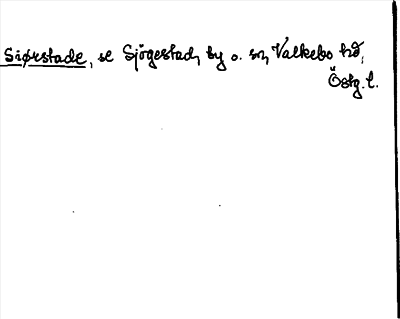 Siørstade, se Sjögestad, by o. sn, Valkebo hd,
Östg. l.